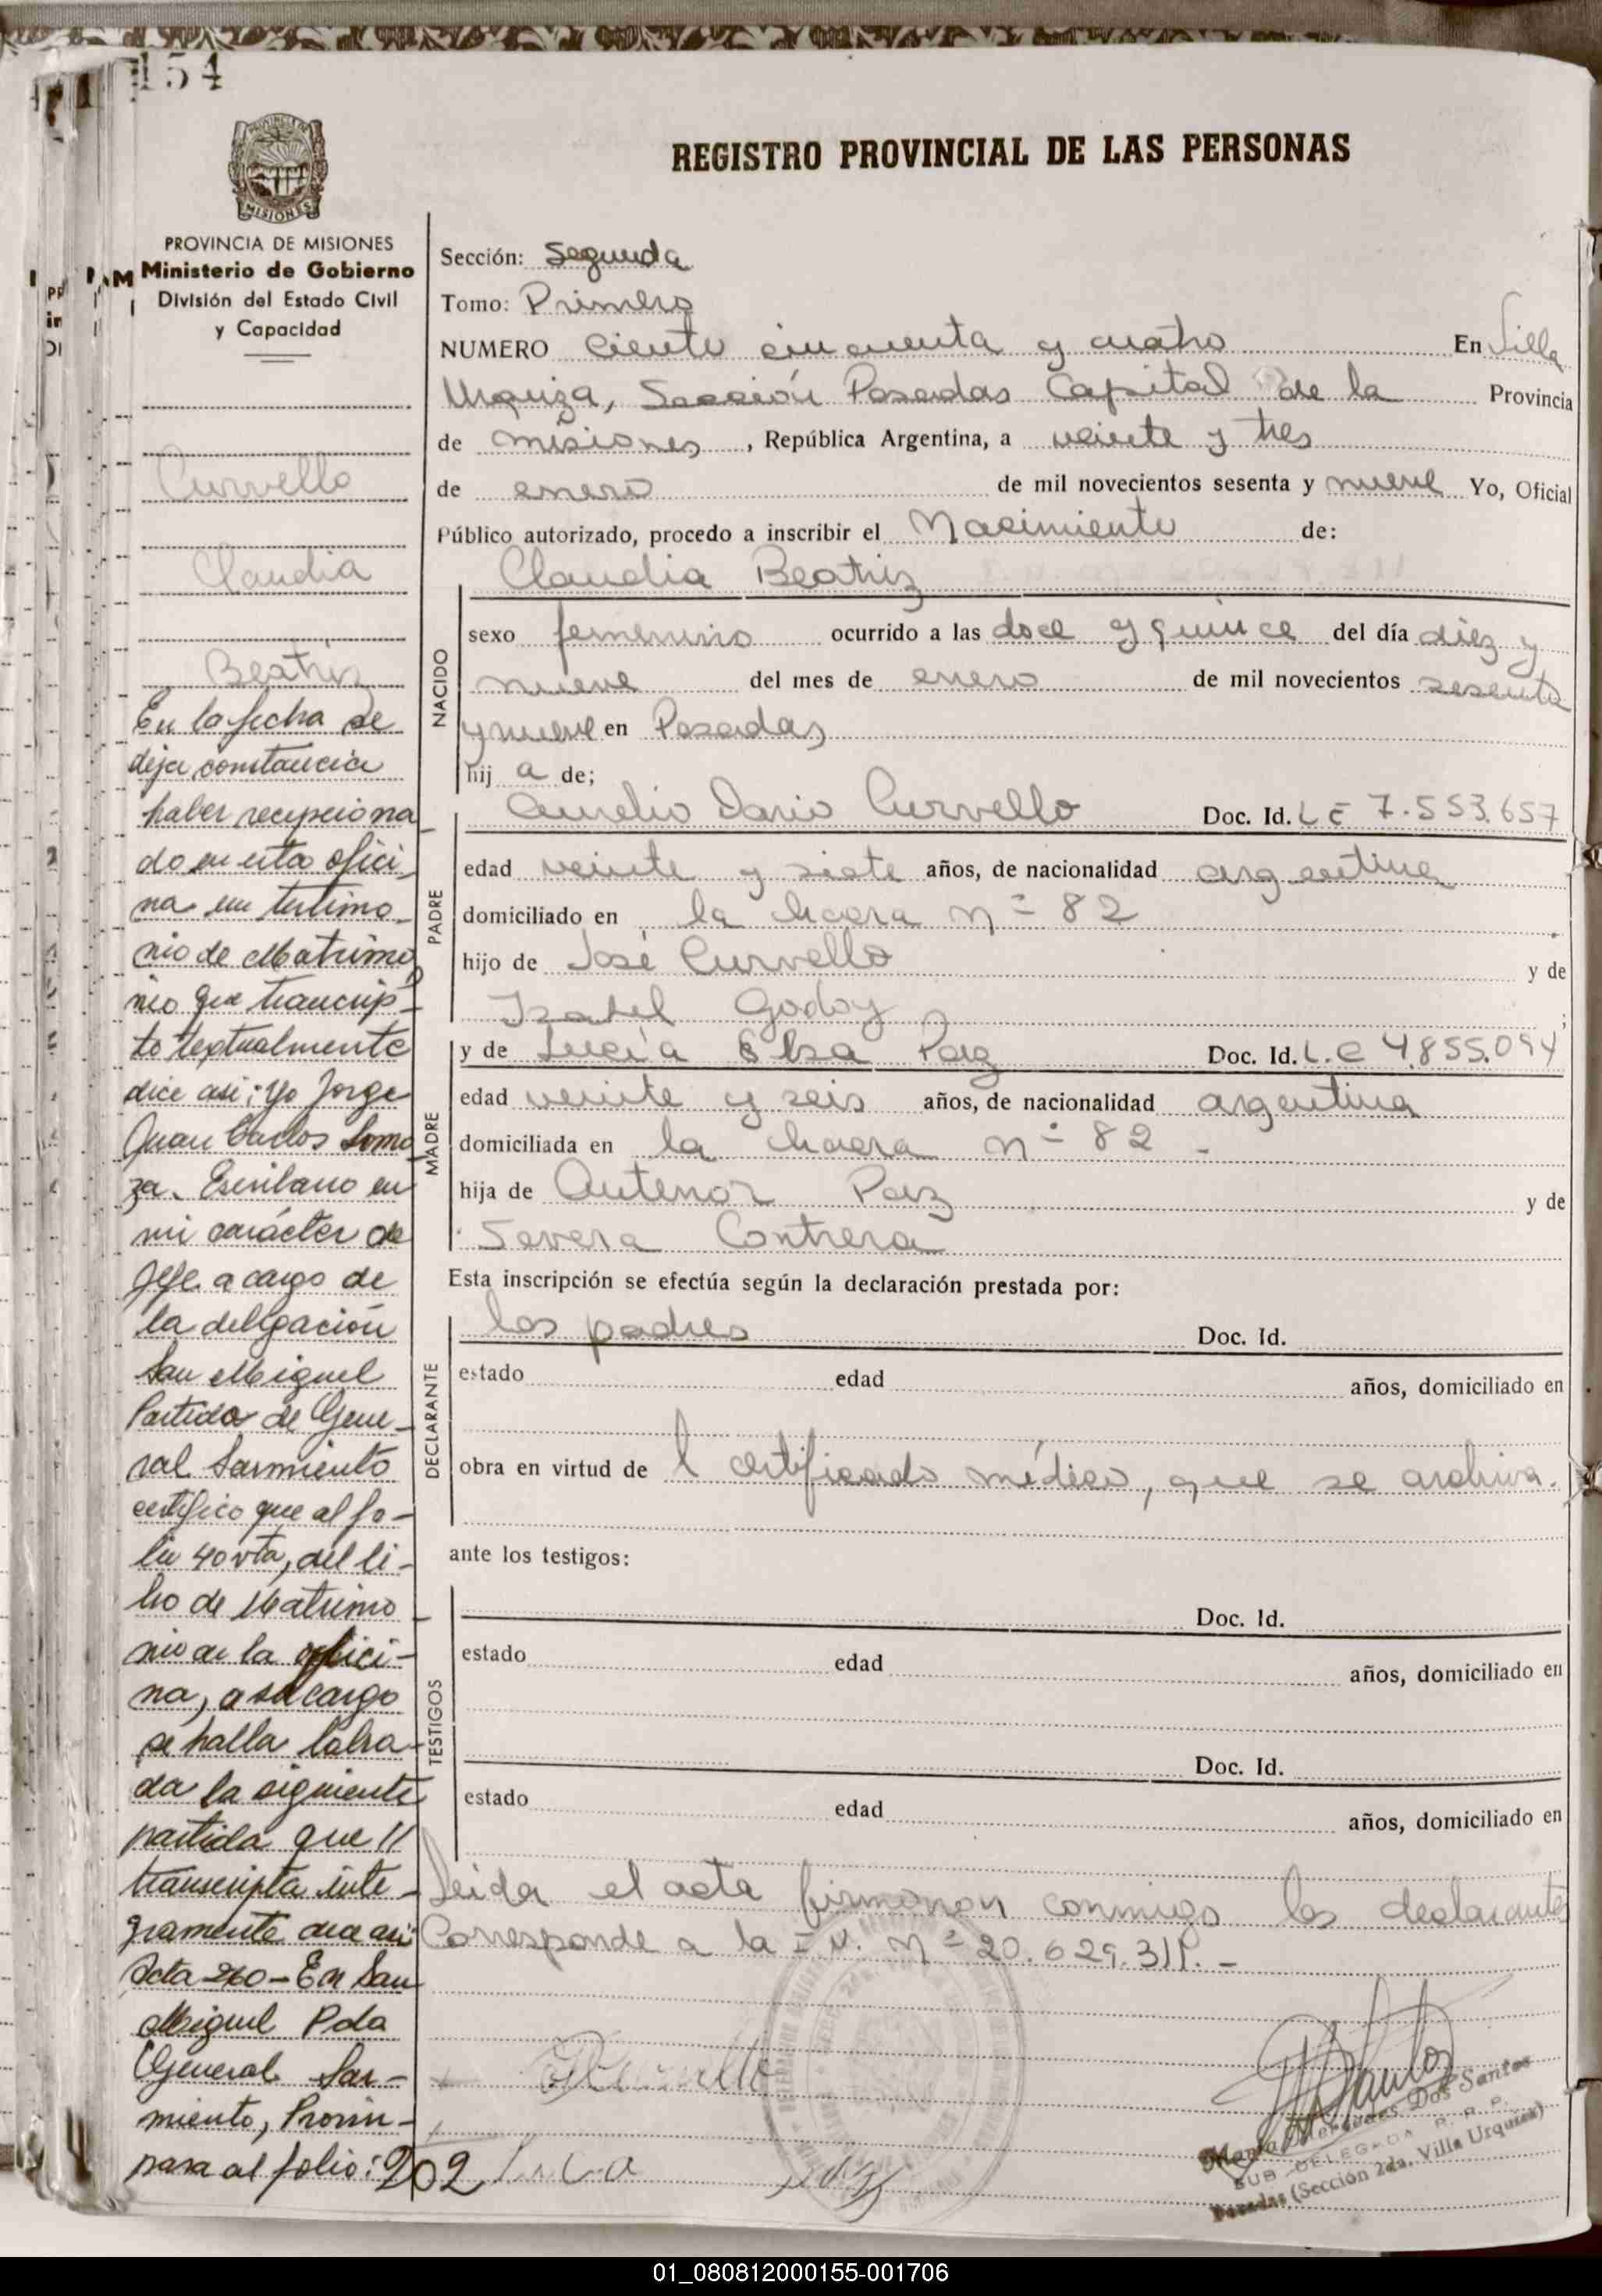 154
PROVINCIA DE MISIONES
Ministerio de Gobierno
División del Estado Civil
y Capacidad
Curvello
Claudia
Beatriz
En la fecha se
deja constancia
haber recepciona
do en esta ofici
na un testimo
nio de Matrimo
nio que transcrip
to textualmente
dice asi: Yo Jorge
Juan Carlos Somo
za. Escribano en
mi carácter de
Jefe a cargo de
la delegación
San Miguel
Partido de Gene
ral Sarmiento
certifico que al fo-
lio 40 vta, del li-
bro de Matrimo
nio de la ofici-
na, a su cargo
se halla labra
da la siguiente
partida que //
transcripta inte
gramente dice asi:
Acta 260 - En San
Miguel Pdo
General Sar-
miento, Provin-
pasa al folio: 202
REGISTRO PROVINCIAL DE LAS PERSONAS
Sección: Segunda
Tomo: Primero
NUMERO Ciento cincuenta y cuatro En Villa
Urquiza, Sección Posadas Capital de la Provincia
de misiones, República Argentina, a veinte y tres
de enero de mil novecientos sesenta y nueve Yo, Oficial
Público autorizado, procedo a inscribir el Nacimiento de:
NACIDO
Claudia Beatriz
sexo femenino ocurrido a las doce y quince del día diez y
nueve del mes de enero de mil novecientos sesenta
y nueve en Posadas
hij a de;
PADRE
Aurelio Dario Curvello Doc. Id. L E 7.553.657
edad veinte y siete años, de nacionalidad argentina
domiciliado en la chacra nº 82
hijo de José Curvello y de
Izabel Godoy ;
MADRE
y de Lucía Elsa Paiz Doc. Id. L.C 4.855.094
edad veinte y seis años, de nacionalidad argentina
domiciliada en la chacra nº 82 -
hija de Antenor Paiz y de
Severa Contrera
Esta inscripción se efectúa según la declaración prestada por:
DECLARANTE
los padres Doc. Id.
estado edad años, domiciliado en
obra en virtud de l certificado médico, que se archiva.
ante los testigos:
TESTIGOS
Doc. Id.
estado edad años, domiciliado en
Doc. Id.
estado edad años, domiciliado en
Leida el acta firmaron conmigo los declarantes
Corresponde a la I.N. Nº 20.629.311. -
Maria Mercedes Dos Santos
SUB DELEGADA R. P. P.
Posadas (Sección 2da. Villa Urquiza)
01_080812000155-001706